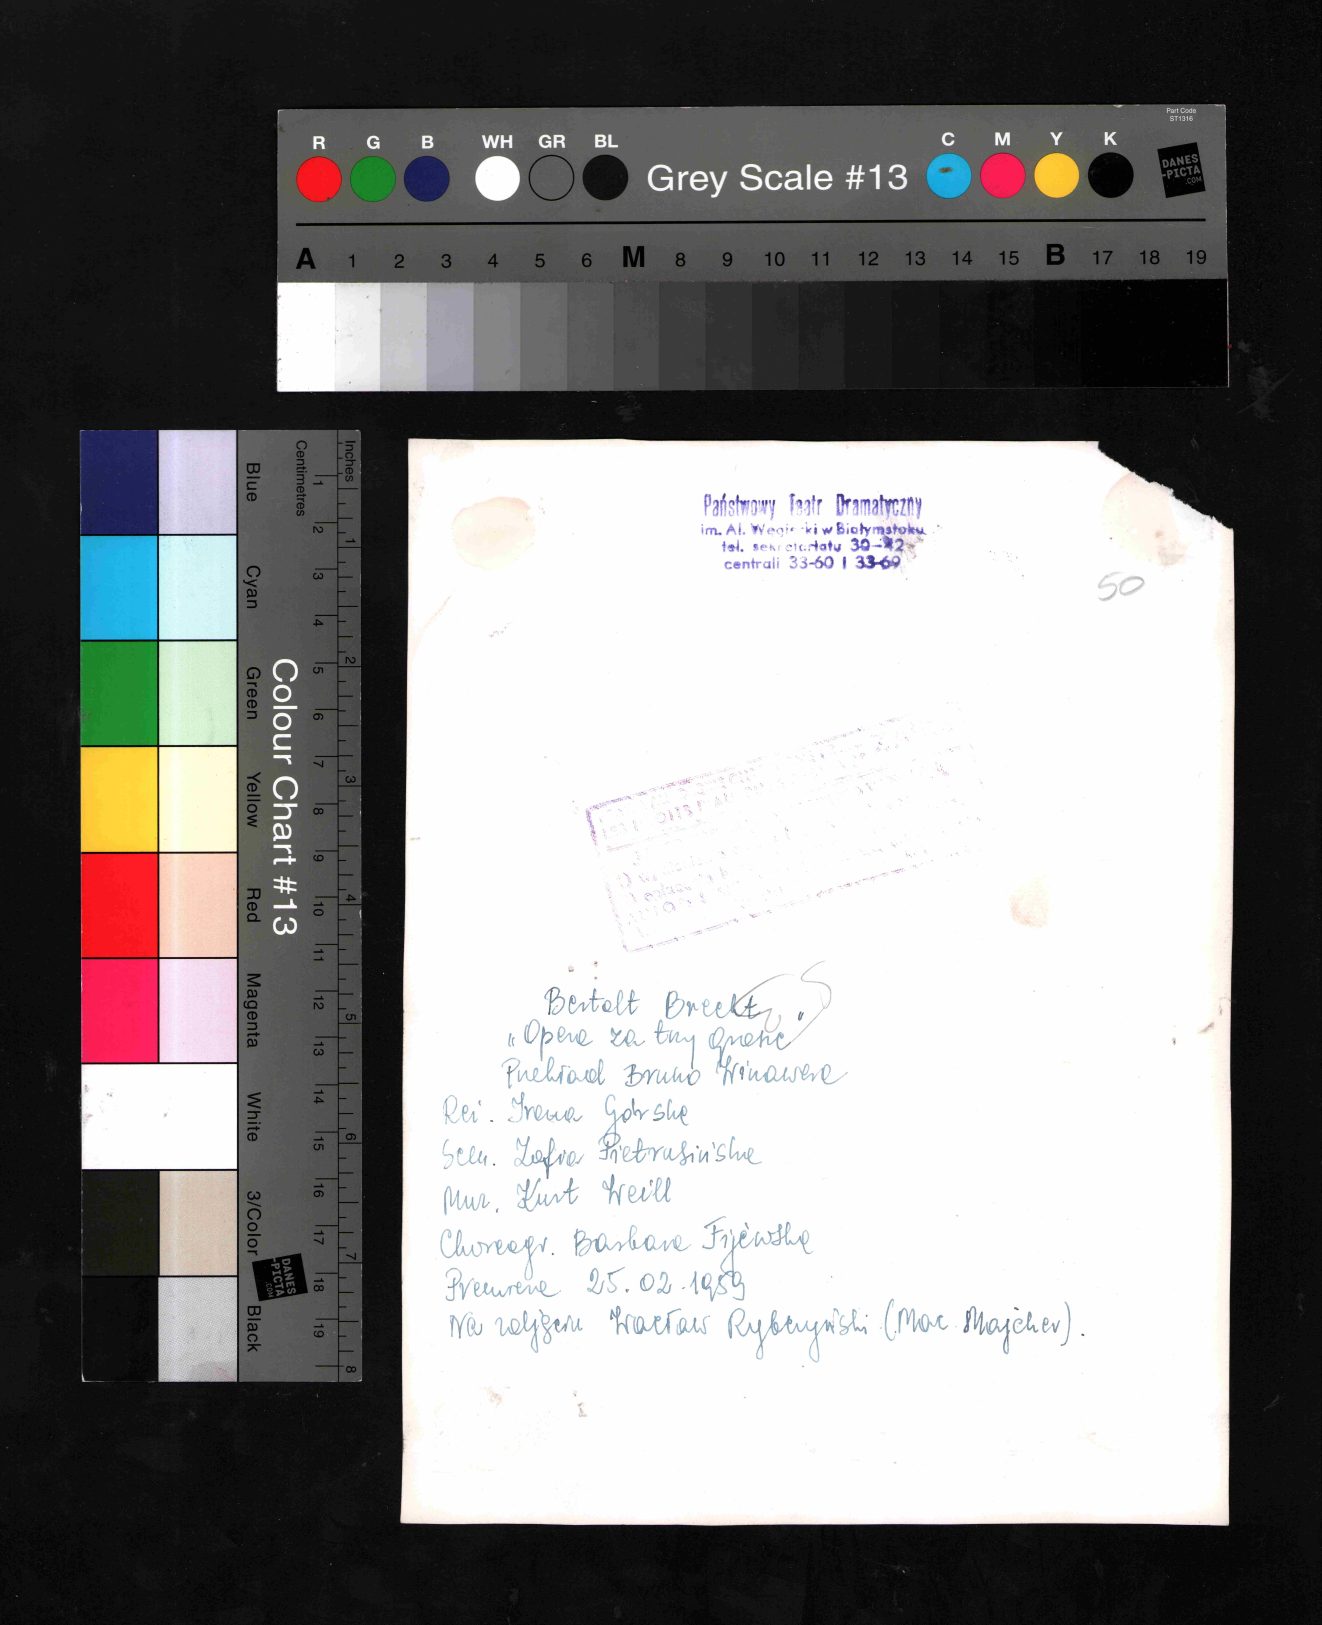 Part Code
ST1316
R G B WH GR BL Grey Scale #13 C M Y K
DANES
-PICTA
.COM
A 1 2 3 4 5 6 M 8 9 10 11 12 13 14 15 B 17 18 19
Colour Chart #13
Blue
Cyan
Green
Yellow
Red
Magenta
White
3/Color
Black
Centimetres
1 2 3 4 5 6 7 8 9 10 11 12 13 14 15 16 17 18 19
Inches
1 2 3 4 5 6 7 8
DANES
-PICTA
.COM
Państwowy Teatr Dramatyczny
im. Al. Węgierki w Białymstoku
tel. sekretariatu 30-42
centrali 33-60 i 33-69
50
Bertolt Brecht
„Opera za trzy grosze”
Przekład Bruno Winawera
Reż. Irena Górska
Scen. Zofia Pietrusińska
Muz. Kurt Weill
Choreogr. Barbara Fijewska
Premiera 25.02.1959
Na zdjęciu Wacław Rybczyński (Mac Majcher).